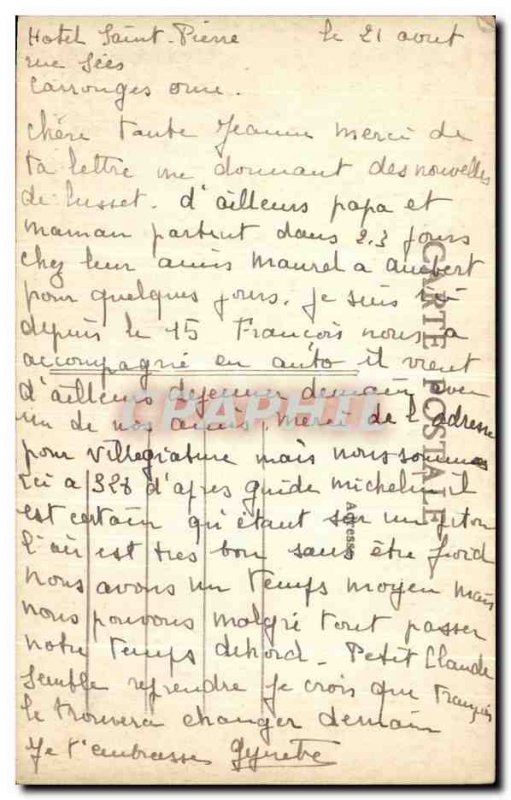 Hotel Saint-Pierre le 21 aout
rue Sées
Carrouges orne.
Chère tante Jeanne merci de
ta lettre me donnant des nouvelles
de Lusset. d'ailleurs papa et
maman partent dans 2.3 jours
chez leur amis Maurel a
pour quelques jours. je suis ici
depuis le 15 François nous a
accompagné en auto il vient
d'ailleurs dejeuner demain avec
un de nos amis, merci de l'adresse
pour villegiature mais nous sommes
ici a 328 d'apres guide michelin il
est certain qu'étant sur un piton
l'air est tres bon sans être froid
Nous avons un temps moyen mais
nous pouvons malgré tout passer
notre temps dehord - Petit Claude
semble reprendre je crois que François
le trouvera changer demain
Je t'embrasse
CARTE POSTALE
Adresse
CPAPHIL.com